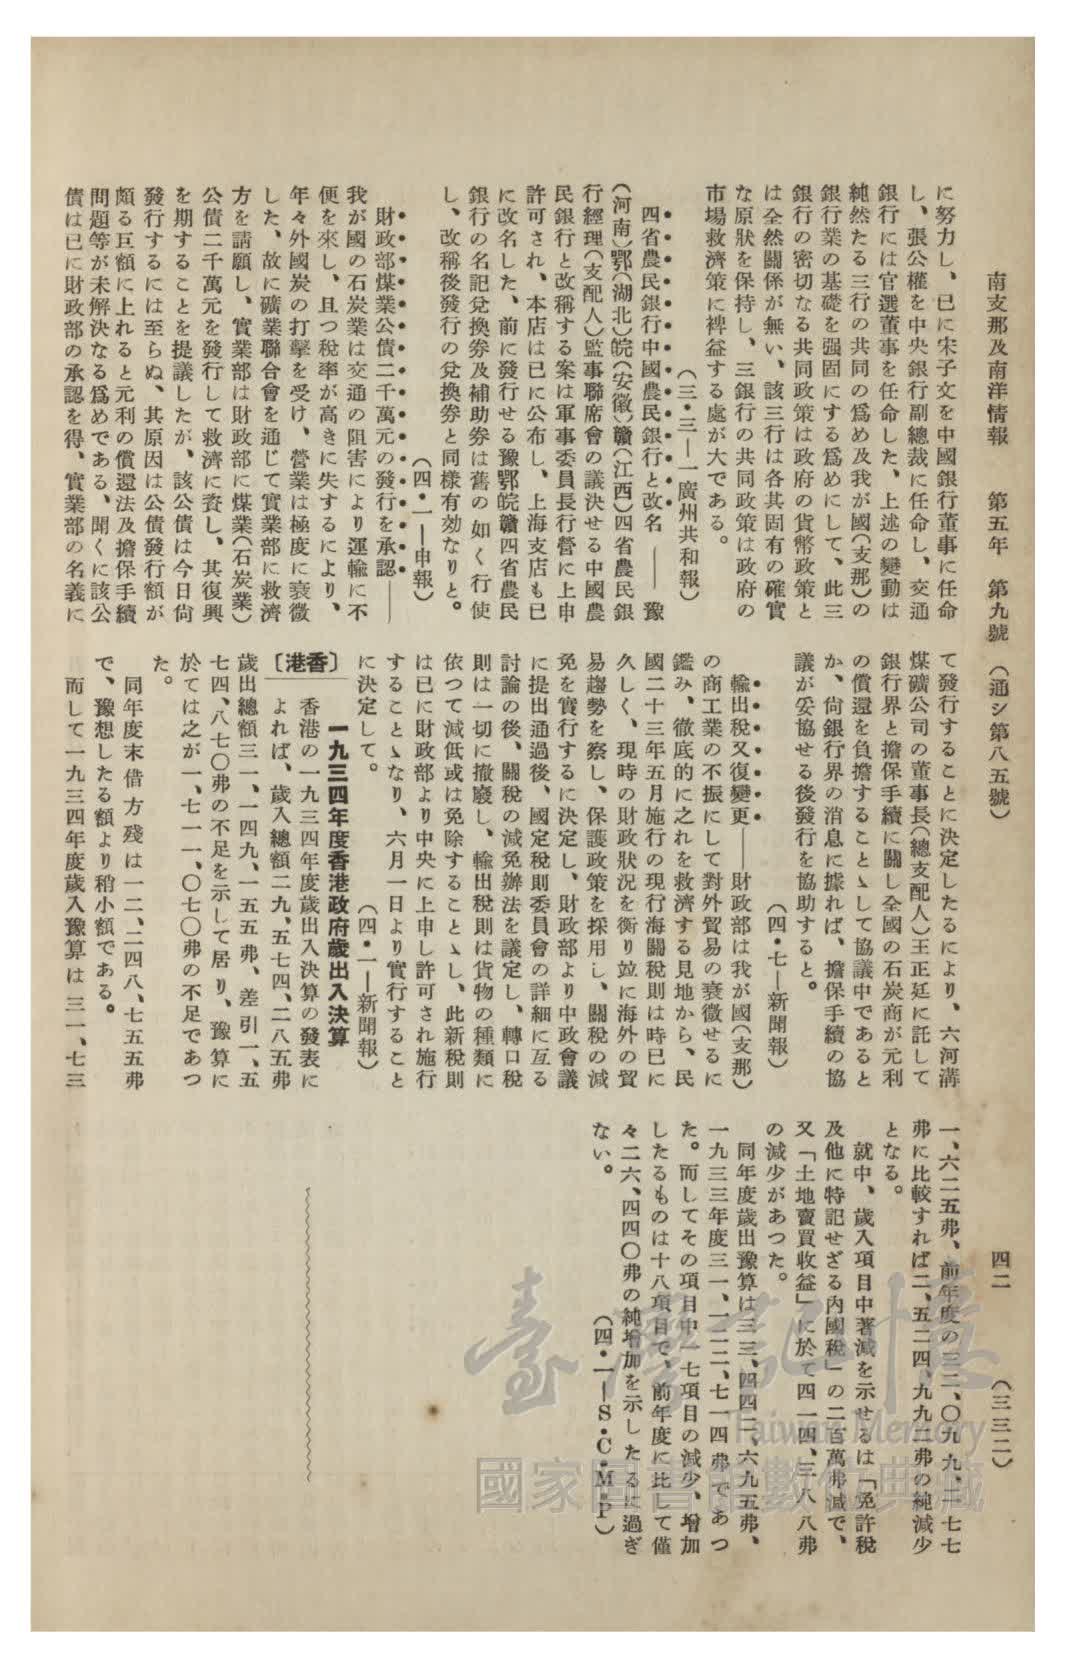 南支那及南洋情報　第五年　第九號　（通シ第八五號）　四二　（三三二）
に努力し、已に宋子文を中國銀行董事に任命
し、張公權を中央銀行副總裁に任命し、交通
銀行には官選董事を任命した、上述の變動は
純然たる三行の共同の爲め及我が國（支那）の
銀行業の基礎を强固にする爲めにして、此三
銀行の密切なる共同政策は政府の貨幣政策と
は全然關係が無い、該三行は各其固有の確實
な原狀を保持し、三銀行の共同政策は政府の
市場救濟策に裨益する處が大である。
（三・三一―廣州共和報）
四省農民銀行中國農民銀行と改名――豫
（河南）鄂（湖北）皖（安徽）贛（江西）四省農民銀
行經理（支配人）監事聯席會の議決せる中國農
民銀行と改稱する案は軍事委員長行營に上申
許可され、本店は已に公布し、上海支店も已
に改名した、前に發行せる豫鄂皖贛四省農民
銀行の名記兌換券及補助券は舊の如く行使
し、改稱後發行の兌換券と同樣有効なりと。
（四・一―申報）
財政部煤業公債二千萬元の發行を承認――
我が國の石炭業は交通の阻害により運輸に不
便を來し、且つ稅率が高きに失するにより、
年々外國炭の打擊を受け、營業は極度に衰微
した、故に礦業聯合會を通じて實業部に救濟
方を請願し、實業部は財政部に煤業（石炭業）
公債二千萬元を發行して救濟に資し、其復興
を期することを提議したが、該公債は今日尙
發行するには至らぬ、其原因は公債發行額が
頗る巨額に上れると元利の償還法及擔保手續
問題等が未解決なる爲めである、聞くに該公
債は已に財政部の承認を得、實業部の名義に
て發行することに決定したるにより、六河溝
煤礦公司の董事長（總支配人）王正廷に託して
銀行界と擔保手續に關し全國の石炭商が元利
の償還を負擔することゝして協議中であると
か、尙銀行界の消息に據れば、擔保手續の協
議が妥協せる後發行を協助すると。
（四・七―新聞報）
輸出稅又復變更――財政部は我が國（支那）
の商工業の不振にして對外貿易の衰微せるに
鑑み、徹底的に之れを救濟する見地から、民
國二十三年五月施行の現行海關稅則は時已に
久しく、現時の財政狀況を衡り竝に海外の貿
易趨勢を察し、保護政策を採用し、關稅の減
免を實行するに決定し、財政部より中政會議
に提出通過後、國定稅則委員會の詳細に亙る
討論の後、關稅の減免辦法を議定し、轉口稅
則は一切に撤廢し、輸出稅則は貨物の種類に
依つて減低或は免除することゝし、此新稅則
は已に財政部より中央に上申し許可され施行
することゝなり、六月一日より實行すること
に決定して。
（四・一―新聞報）
一九三四年度香港政府歲出入決算
〔香港〕
香港の一九三四年度歲出入決算の發表に
よれば、歲入總額二九、五七四、二八五弗
歲出總額三一、一四九、一五五弗、差引一、五
七四、八七〇弗の不足を示して居り、豫算に
於ては之が一、七一一、〇七〇弗の不足であつ
た。
同年度末借方殘は一二、二四八、七五五弗
で、豫想したる額より稍小額である。
而して一九三四年度歲入豫算は三一、七三
一、六二五弗、前年度の三二、〇九九、二七七
弗に比較すれば二、五二四、九九二弗の純減少
となる。
就中、歲入項目中著減を示せるは「免許稅
及他に特記せざる內國稅」の二百萬弗減で、
又「土地賣買收益」に於て四一四、三八八弗
の減少があつた。
同年度歲出豫算は三三、四四二、六九五弗、
一九三三年度三一、一二二、七一四弗であつ
た。而してその項目中一七項目の減少、增加
したるものは十八項目で、前年度に比して僅
々二六、四四〇弗の純增加を示したるに過ぎ
ない。
（四・一―S・C・M・P）
臺灣記憶
Taiwan Memory
國家圖書館數位典藏